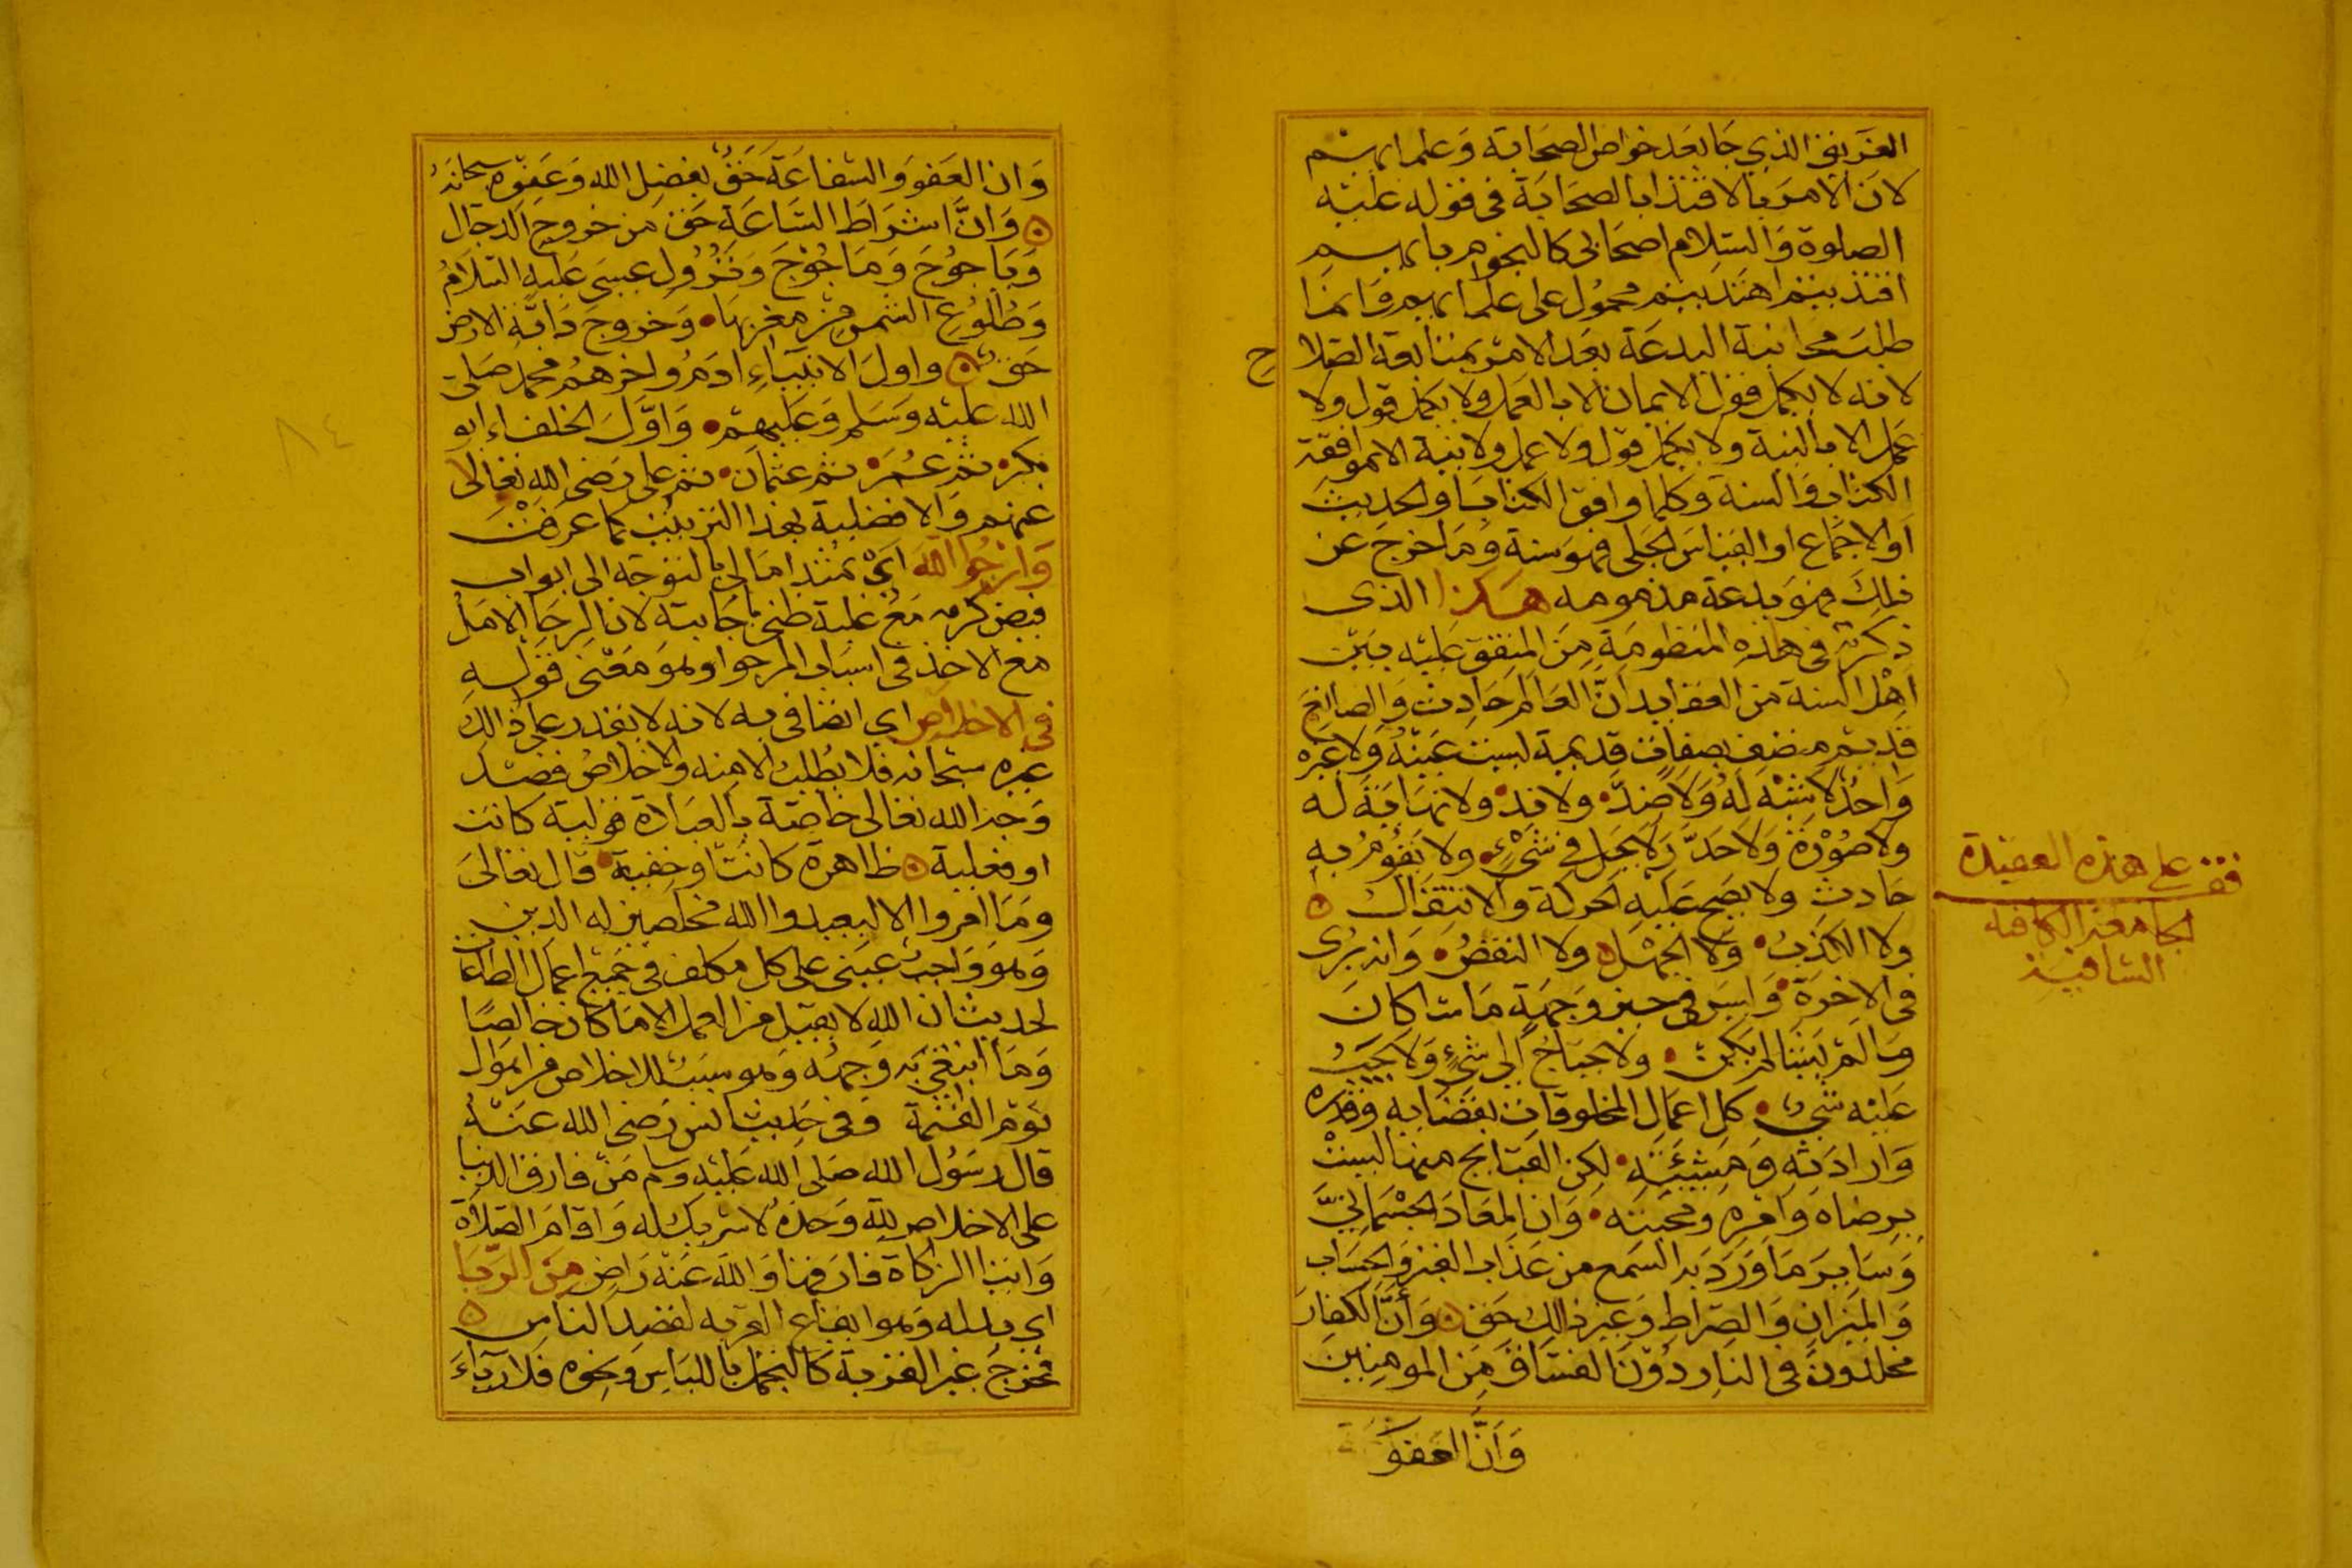 الفريق الذي جا بعد خواص الصحابة وعلمايهم
لان الامر بالاقتدا بالصحابة في قوله عليه
الصلوة والسلام اصحابي كالنجوم بايهم
اقتديتم اهتديتم محمول على علمايهم وانما
طلب مجانبة البدعة بعد الامر بمتابعة الصلا
ح
لانه لا يكمل قول الايمان الا بالعمل ولا يكمل قول ولا
عمل الا بالنية ولا يكمل قول ولا عمل ولا نية الا بموافقة
الكتاب والسنة وكلما وافق الكتاب او الحديث
او الاجماع او القياس الجلي فهو سنة وما خرج عن
ذلك فهو بدعة مذمومه هكذا الذى
ذكرته في هذه المنظومة من المتفق عليه بين
اهل السنة من العقايد ان العالم حادث والصانع
قديم متصف بصفات قديمية ليست عينه ولا غيره
واحد لا شبه له ولا ضد ولا ند ولا نهاية له
ولا صورة ولا حد ولا يحل في شيء ولا يقوم به
حادث ولا يصح عليه الحركة والانتقال
ولا الكذب ولا الجهل ولا النقص وانه يرى
في الاخرة وليس في حيز وجهة ما شا كان
وما لم يشا لم يكن ولا يحتاج الى شيء ولا يجب
عليه شيء كل اعمال المخلوقات بقضايه وقدره
وارادته ومشيئته لكن القبايح منها ليست
برضاه وامره ومحبته وان المعاد الجسماني
وساير ما ورد به السمع من عذاب القبر والحساب
والميزان والصراط وغير ذلك حق وأن الكفار
مخلدون في النار دون الفساق من المومنين
وأن العفو
قف على هذه العقيدة
الجامعة الكافيه
الشافية
وان العفو والشفاعة حق بفضل الله وعفوه سبحانه
وان اشراط الساعة حق من خروج الدجال
وياجوج وماجوج ونزول عيسى عليه السلام
وطلوع الشمس من مغربها وخروج دابة الارض
حق واول الانبياء ادم واخرهم محمد صلى
الله عليه وسلم وعليهم واول الخلفاء ابو
بكر ثم عمر ثم عثمان ثم علي رضي الله تعالى
عنهم والافضلية بهذا الترتيب كما عرفت
وارجوا الله اي تمتد امالي بالتوجه الى ابواب
فيض كرمه مع غلبة ظني باجابته لان الرجا الامل
مع الاخذ في اسباب المرجو او هو معنى قوله
في الاخلاص اي اتصافي به لانه لا يقدر على ذلك
غيره سبحانه فلا يطلب الا منه والاخلاص قصد
وجه الله تعالى خاصة بالعبادة قولية كانت
او فعلية ظاهرة كانت او خفية قال تعالى
وما امروا الا ليعبدوا الله مخلصين له الدين
وهو واجب عيني على كل مكلف في جميع اعمال الطاعات
لحديث ان الله لا يقبل من العمل الا ما كان خالصا
وما ابتغي به وجهه وهو سبب للخلاص من اهوال
يوم القيمة وفي حديث انس رضي الله عنه
قال رسول الله صلى الله عليه وسلم من فارق الدنيا
على الاخلاص لله وحده لا شريك له واقام الصلاة
وايتا الزكاة فارقها والله عنه راض من الريا
اي بدله وهو ايقاع القربه لقصد الناس
فخرج غير القربة كالتجمل باللباس ونحوه فلا رياء
٨٤